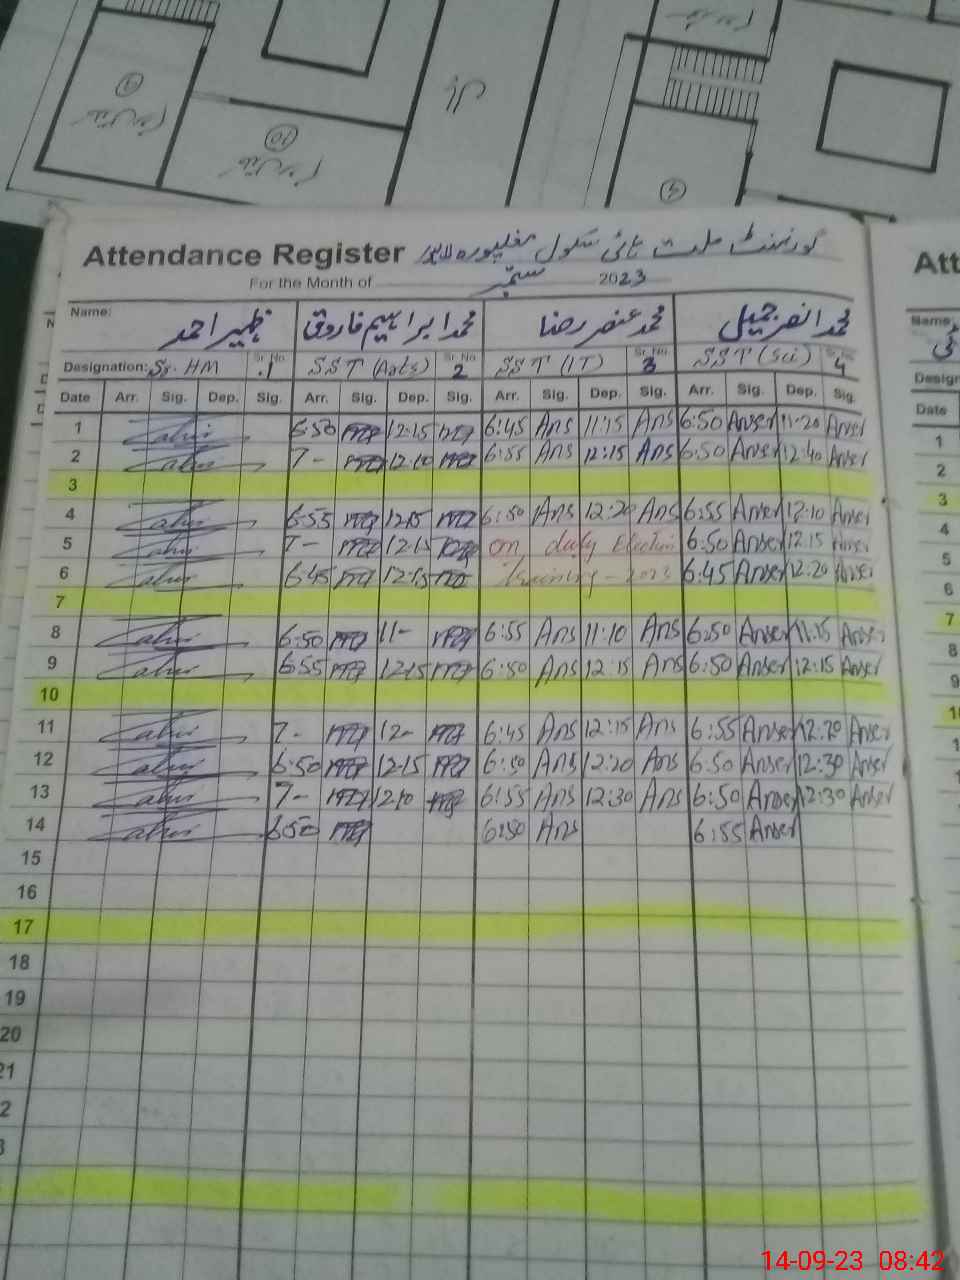 ہال
9
10
4
Attendance Register گورنمنٹ ملت ہائی سکول مغلپورہ لاہور
For the Month of ستمبر 2023
Name: ظہیر احمد محمد ابراہیم فاروق محمد عنصر رضا محمد انصر جمیل
Designation: Sr. HM Sr. No. 1 SST (Arts) Sr. No. 2 SST (IT) Sr. No. 3 SST (Sci) Sr. No. 4
Date Arr. Sig. Dep. Sig. Arr. Sig. Dep. Sig. Arr. Sig. Dep. Sig. Arr. Sig. Dep. Sig.
1 6:50 12:15 6:45 Ans 11:15 Ans 6:50 Anser 11:20 Anser
2 7- 12:10 6:55 Ans 12:15 Ans 6:50 Anser 12:40 Anser
3
4 6:55 12:15 6:50 Ans 12:20 Ans 6:55 Anser 12:10 Anser
5 7- 12:15 on duty Election 6:50 Anser 12:15 Anser
6 6:45 12:15 Training - 2023 6:45 Anser 12:20 Anser
7
8 6:50 11- 6:55 Ans 11:10 Ans 6:50 Anser 11:15 Anser
9 6:55 12:15 6:50 Ans 12:15 Ans 6:50 Anser 12:15 Anser
10
11 7- 12- 6:45 Ans 12:15 Ans 6:55 Anser 12:20 Anser
12 6:50 12:15 6:50 Ans 12:20 Ans 6:50 Anser 12:30 Anser
13 7- 12:10 6:55 Ans 12:30 Ans 6:50 Anser 12:30 Anser
14 6:50 6:50 Ans 6:55 Anser
15
16
17
18
19
20
21
2
3
Att
Name:
Design
Date
1
2
3
4
5
6
7
8
9
10
14-09-23 08:42